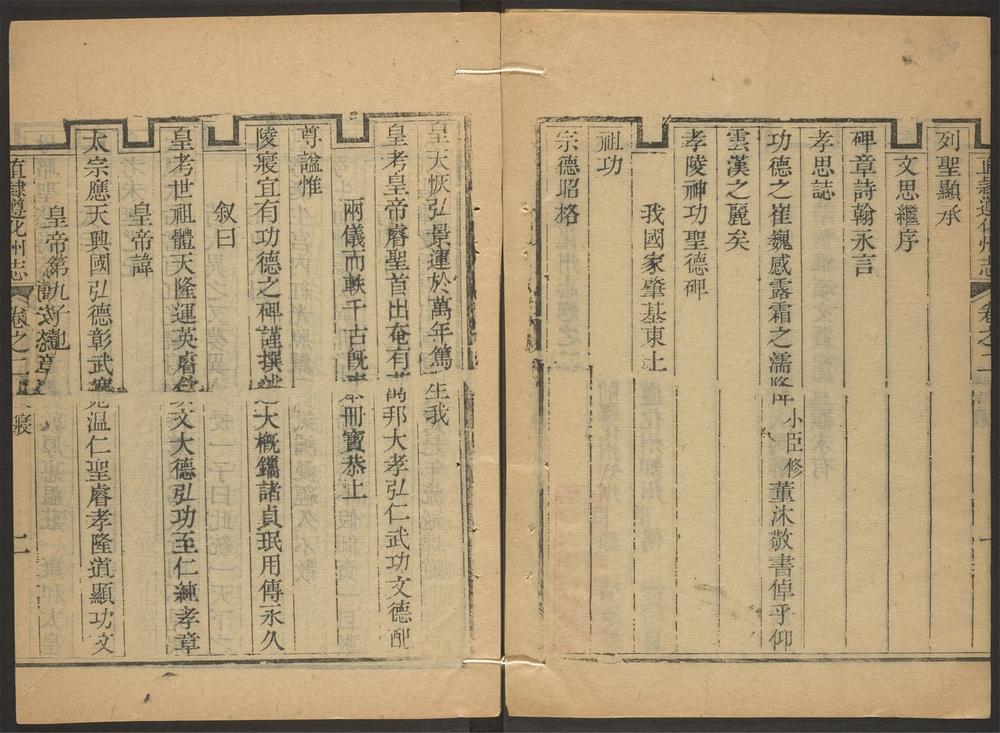 直隸遵化州志 卷之二 一
列聖顯承
文思繼序
碑章詩翰永言
孝思誌
功德之崔巍感露霜之濡降小臣修董沐敬書倬乎仰
雲漢之麗矣
孝陵神功聖德碑
我國家肇基東土
祖功
宗德昭格
皇天恢弘景運於萬年篤生我
皇考皇帝睿聖首出奄有萬邦大孝弘仁武功文德配
兩儀而軼千古旣 冊寶恭上
尊謚惟
陵寢宜有功德之碑謹撰述大槪鐫諸貞珉用傳永久
叙曰
皇考世祖體天隆運英睿欽文大德弘功至仁純孝章
皇帝諱
太宗應天興國弘德彰武寬溫仁聖睿孝隆道顯功文
皇帝第九子也
直隸遵化州志 卷之二 寢 二